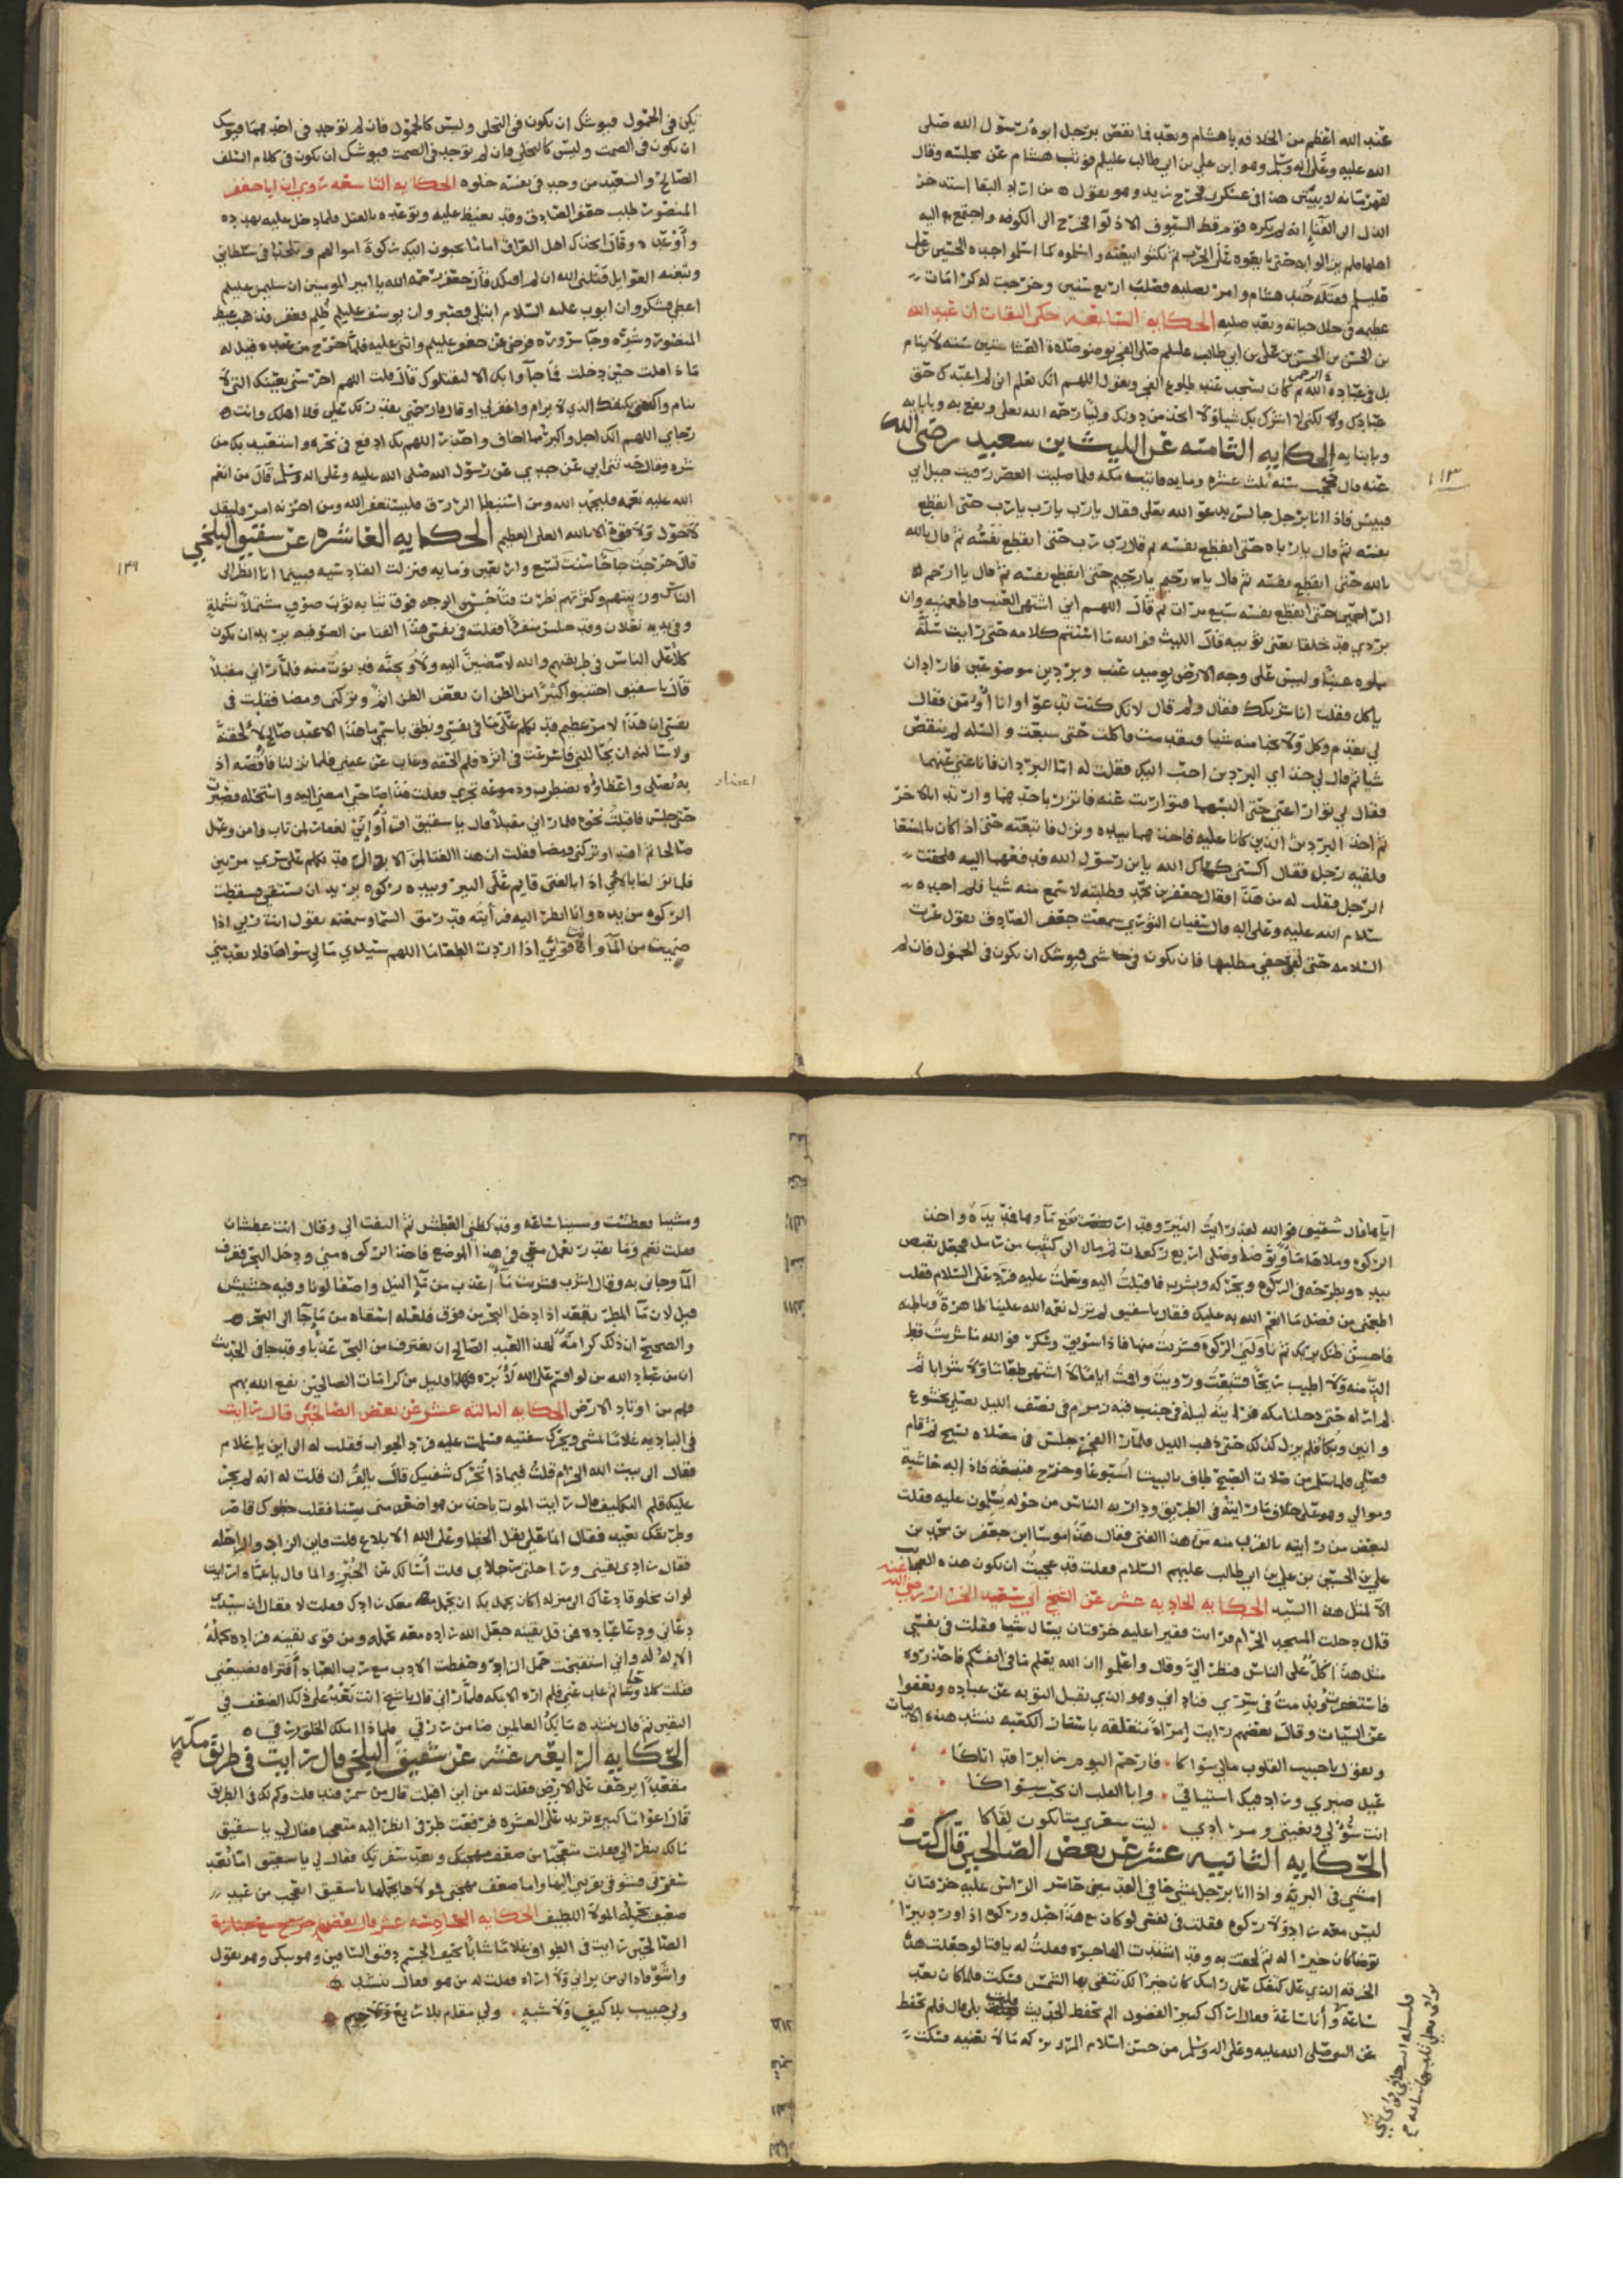 عند الله اعظم من الخلافه يا هشام وبعد فما نقص برجل ابوه رسول الله صلى
الله عليه وعلى اله وسلم وهو ابن علي بن ابي طالب عليلم فوثب هشام عن مجلسه وقال
لقهرمانه لا يبيتن هذا في عسكري فخرج زيد وهو يقول ه من اراد البقا استدخر
الذل الى الفنا انه لم يكره قوم قط السيوف الا ذلوا فخرج الى الكوفه واجتمع اليه
اهلها فلم يزالوا به حتى بايعوه على الحرب ثم نكثوا بيعته واسلموه كما اسلموا جده الحسين بن علي
عليلم فقتله جند هشام وامر بصلبه فصلب اربع سنين وخرجت له كرامات
عظيمه في حال حياته وبعد صلبه الحكايه السابعه حكى الثقات ان عبد الله
بن الحسن بن الحسن بن علي بن ابي طالب عليلم صلى الفجر بوضو صلاة العشا ستين سنه لا ينام
بل في عبادة الله كان يسجد عند طلوع الفجر ويقول اللهم انك تعلم اني لم اعبدك حق
عبادتك ولا لكني لا اشرك بك شيا ولا اتخذ من دونك وليا رحمه الله تعالى ونفع به وبابايه
وبابنايه الحكايه الثامنه عن الليث بن سعيد رضي الله
عنه قال حججت سنه ثلث عشره ومايه فاتيت مكه فلما صليت العصر رقيت جبل ابي
قبيس فاذا انا برجل جالس يدعو الله تعلى فقال يارب يارب يارب حتى انقطع
نفسه ثم قال يا رباه حتى انقطع نفسه ثم قال رب رب حتى انقطع نفسه ثم قال يالله
يالله حتى انقطع نفسه ثم قال يا رحيم يا رحيم حتى انقطع نفسه ثم قال يا ارحم
الراحمين حتى انقطع نفسه سبع مرات ثم قال اللهم اني اشتهي العنب فاطعمنيه وان
بردي قد خلقا يعني ثوبيه قال الليث فوالله ما استتم كلامه حتى رايت سلة
مملوه عنبا وليس على وجه الارض يوميذ عنب وبردين موضوعين فاراد ان
ياكل فقلت انا شريكك فقال ولم قال لانك كنت تدعو وانا اومن فقال
لي تقدم وكل ولا تخبا منه شيا فتقدمت فاكلت حتى شبعت والسله لم ينقص
شيا ثم قال لي خذ اي البردين احب اليك فقلت له اما البردان فانا غني عنهما
فقال لي توار عني حتى البسهما فتواريت عنه فاتزر باحدهما وارتد بالاخر
ثم اخذ البردين الذين كانا عليه فاخذهما بيده ونزل فاتبعته حتى اذا كان بالمسعا
فلقيه رجل فقال اكسني كساك الله يابن رسول الله فدفعهما اليه فلحقت
الرجل فقلت له من هذا فقال جعفر بن محمد فطلبته لاسمع منه شيا فلم اجده
سلام الله عليه وعلى اله قال سفيان الثوري سمعت جعفر الصادق يقول عزت
السلامه حتى لقد خفي مطلبها فان تكون في شي فيوشك ان يكون في الخمول فان لم
١١٣
يكن في الخمول فيوشك ان يكون في التخلي وليس كالخمول فان لم توجد في احدهما فيوشك
ان يكون في الصمت وليس كالتخلي فان لم توجد في الصمت فيوشك ان يكون في كلام السلف
الصالح والسعيد من وجد في نفسه خلوه الحكايه التاسعه روي ان ابا جعفر
المنصور طلب جعفر الصادق وقد تغيظ عليه وتوعده بالقتل فلما دخل عليه تهدده
واوعده وقال اتخذك اهل العراق اماما يجبون اليك زكوة اموالهم وتلحد في سلطاني
وتبغه الغوايل قتلني الله ان لم اقتلك فقال جعفر رحمه الله يا امير المومنين ان سليمن عليلم
اعطي فشكر وان ايوب عليه السلام ابتلي فصبر وان يوسف عليلم ظلم فغفر فذهب غيظ
المنصور وشره وجا سروره فرضي عن جعفر عليلم واثنى عليه فلما خرج من عنده قيل له
ماذا قلت حين دخلت فما جاوا بك الا ليقتلوك قال قلت اللهم احرسني بعينك التي لا
تنام واكنفني بكنفك الذي لا يرام واغفر لي وارحمني بقدرتك علي فلا اهلك وانت
رجاي اللهم انك اجل واكبر مما اخاف واحذر اللهم بك ادفع في نحره واستعيذ بك من
شره وقال حدثني ابي عن جدي عن رسول الله صلى الله عليه وعلى اله وسلم قال من انعم
الله عليه نعمه فليحمد الله ومن استبطا الرزق فليستغفر الله ومن احزنه امر فليقل
لا حول ولا قوة الا بالله العلي العظيم الحكايه العاشره عن سقيق البلخي
قال خرجت حاجا سنت تسع واربعين ومايه فنزلت القادسيه فبينما انا انظر الى
الناس وزينتهم وكثرتهم نظرت فتا حسن الوجه فوق ثيابه ثوب صوف مشتملا بشملة
وفي يديه نعلان وقد جلس منفردا فقلت في نفسي هذا الفتا من الصوفيه يريد ان يكون
كلا على الناس في طريقهم والله لامضين اليه ولاوبخنه فدنوت منه فلما راني مقبلا
قال يا سقيق اجتنبوا كثيرا من الظن ان بعض الظن اثم وتركني ومضا فقلت في
نفسي ان هذا لامر عظيم قد تكلم على ما في نفسي ونطق باسمي ما هذا الا عبد صالح لالحقنه
ولاسالنه ان يحاللني فاسرعت في اثره فلم الحقه وغاب عن عيني فلما نزلنا فاقصه اذ
به يصلي واعطاوه تضطرب ودموعه تجري فقلت هذا صاحبي امضي اليه واستحله فصبرت
حتى جلس فاقبلت نحوه فلما راني مقبلا قال يا سقيق اقرا واني لغفار لمن تاب وامن وعمل
صالحا ثم اهتدا وتركني ومضا فقلت ان هذا الفتا لمن الابدال قد تكلم على سري مرتين
فلما نزلنا بالابوا اذا بالفتى قايم على البير وبيده ركوه يريد ان يستقي فسقطت
الركوه من يده وانا انظر اليه فرايته قد رمق السما وسمعته يقول انت ربي اذا
ضميت من الماء وقوتي اذا اردت الطعاما اللهم سيدي مالي سواها فلا تعدمني
١٣٩
اعضاه
اياها قال شقيق فوالله لقد رايت البير وقد ارتفع ماوها فمد يده واخذ
الركوه وملاها ما وتوضا وصلى اربع ركعات ثم مال الى كثيب من رمل فجعل يقبض
بيده ويطرحه في الركوه ويحركه ويشربه فاقبلت اليه وسلمت عليه فرد علي السلام فقلت
اطعمني من فضل ما انعم الله به عليك فقال يا سقيق لم تزل نعمة الله علينا ظاهرة وباطنه
فاحسن ظنك بربك ثم ناولني الركوه فشربت منها فاذا سويق وسكر فوالله ما شربت قط
الذ منه ولا اطيب ريحا فشبعت ورويت واقمت اياما لا اشتهي طعاما ولا شرابا ثم
لم اراه حتى دخلنا مكه فرايته ليلة في جنب قبة زمزم في نصف الليل يصلي بخشوع
وانين وبكا فلم يزل كذلك حتى ذهب الليل فلما راا الفجر جلس في مصلاه يسبح ثم قام
فصلى فلما سلم من صلات الصبح طاف بالبيت اسبوعا وخرج فتبعته فاذا له حاشية
وموالي وهو على خلاف ما رايته في الطريق ودار به الناس من حوله يسلمون عليه فقلت
لبعض من رايته بالقرب منه من هذا الفتى فقال هذا موسا ابن جعفر بن محمد بن
علي بن الحسين بن علي بن ابي طالب عليهم السلام فقلت قد عجبت ان تكون هذه العجايب
الا لمثل هذا السيد الحكايه الحاديه عشر عن الشيخ ابي سعيد الخراز رضي الله عنه
قال دخلت المسجد الحرام فرايت فقيرا عليه خرقتان يسال شيا فقلت في نفسي
مثل هذا كل على الناس فنظر الي وقال واعلموا ان الله يعلم ما في انفسكم فاحذروه
فاستغفرت وندمت في سري فناداني وهو الذي يقبل التوبه عن عباده ويعفوا
عن السيات وقال بعضهم رايت امراة متعلقه باستار الكعبه تنشد هذه الابيات
وتقول يا حبيب القلوب مالي سواكا ٠ فارحم اليوم زايرا قد اتاكا
عيل صبري وزاد فيك اشتياقي ٠ وابا القلب ان يحب سواكا
انت سؤلي وبغيتي ومرادي ٠ ليت شعري متا يكون لقاكا
الحكايه الثانيه عشر عن بعض الصالحين قال كنت
امشي في البريه واذا انا برجل يمشي حافي القدمين حاسر الراس عليه خرقتان
ليس معه زاد ولا ركوه فقلت في نفسي لو كان مع هذا حبل وركوه اذا ورد بيرا
توضا كان خيرا له ثم لحقت به وقد اشتدت الهاجره فقلت له يافتا لو جعلت هذه
الخرقه الذي على كتفك على راسك كان خيرا لك تتقي بها الشمس فسكت فلما كان بعد
ساعه وانا ساعة فقال اراك كثير الفضول الم تحفظ الحديث قلت بلى قال فلم تحفظ
عن النبي صلى الله عليه وعلى اله وسلم من حسن اسلام المرء تركه ما لا يعنيه فسكت
ومشينا فعطشت وسينا ساعه وقد كظني العطش ثم التفت الي وقال انت عطشان
فقلت نعم وما تقدر تعمل معي في هذا الموضع فاخذ الركوه مني ودخل البحر فغرف
الما وجاني به وقال اشرب فشربت ماء اعذب من ماء النيل واصفا لونا وفيه حشيش
قيل لان ما المطر ينعقد اذا دخل البحر من فوق فلعله اسقاه من ما جا الى البحر
والصحيح ان ذلك كرامة لهذا العبد الصالح ان يغترف من البحر عذبا وقد جا في الحديث
ان من عباد الله من لو اقسم على الله لابره فهذا قليل من كرامات الصالحين نفع الله بهم
فهم من اوتاد الارض الحكايه الثالثه عشر عن بعض الصالحين قال رايت
في الباديه غلاما يمشي ويحرك شفتيه فسلمت عليه فرد الجواب فقلت له الى اين يا غلام
فقال الى بيت الله الحرام قلت فبماذا تحرك شفتيك قال بالقران قلت له انه لم يجر
عليك قلم التكليف قال رايت الموت ياخذ من هو اصغر مني سنا فقلت خطوك قاصر
وطريقك بعيد فقال انما علي نقل الخطا وعلى الله الابلاغ قلت فاين الزاد والراحله
فقال زادي يقيني وراحلتي رجلاي قلت اسالك عن الخبز والما قال يا عماه ارايت
لو ان مخلوقا دعاك الى منزله اكان يجمل بك ان تحمل معك زادك فقلت لا فقال ان سيدي
دعاني ودعا عباده فمن قل يقينه جعل الله زاده معه يحمله ومن قوى يقينه فزاده يحمله
الاله له واني استقبحت حمل الزاد وحفظت الادب مع رب العباد افتراه يضيعني
فقلت كلا وحاشا ثم غاب عني فلم اره الا بمكه فلما راني قال يا شيخ انت بعد على ذلك الضعف في
اليقين ثم قال ينشد مالك العالمين ضامن رزقي فلماذا املك الخلق رقي
الحكايه الرابعه عشر عن شقيق البلخي قال رايت في طريق مكه
مقعدا يزحف على الارض فقلت له من اين اقبلت قال من سمرقند قلت وكم لك في الطريق
قال اعواما كثيره تزيد على العشره فرفعت طرفي انظر اليه متعجبا فقال لي يا سقيق
مالك تنظر الي فقلت متعجبا من ضعف مهجتك وبعد سفرتك فقال لي يا سقيق اما بعد
سفرتي فشوقي يقربني اليها واما ضعف مهجتي فمولاها يحملها يا سقيق اتعجب من عبد
ضعيف يحمله المولا اللطيف الحكايه الخامسه عشر قال بعضهم
الصالحين رايت في الطواف غلاما شابا نحيف الجسم دقيق الساقين وهو يبكي وهو يقول
واشوقاه الى من يراني ولا اراه فقلت له من هو فقال ينشد
ولي حبيب بلا كيف ولا شبيه ٠ ولي مقام بلا ربع ولا خيم